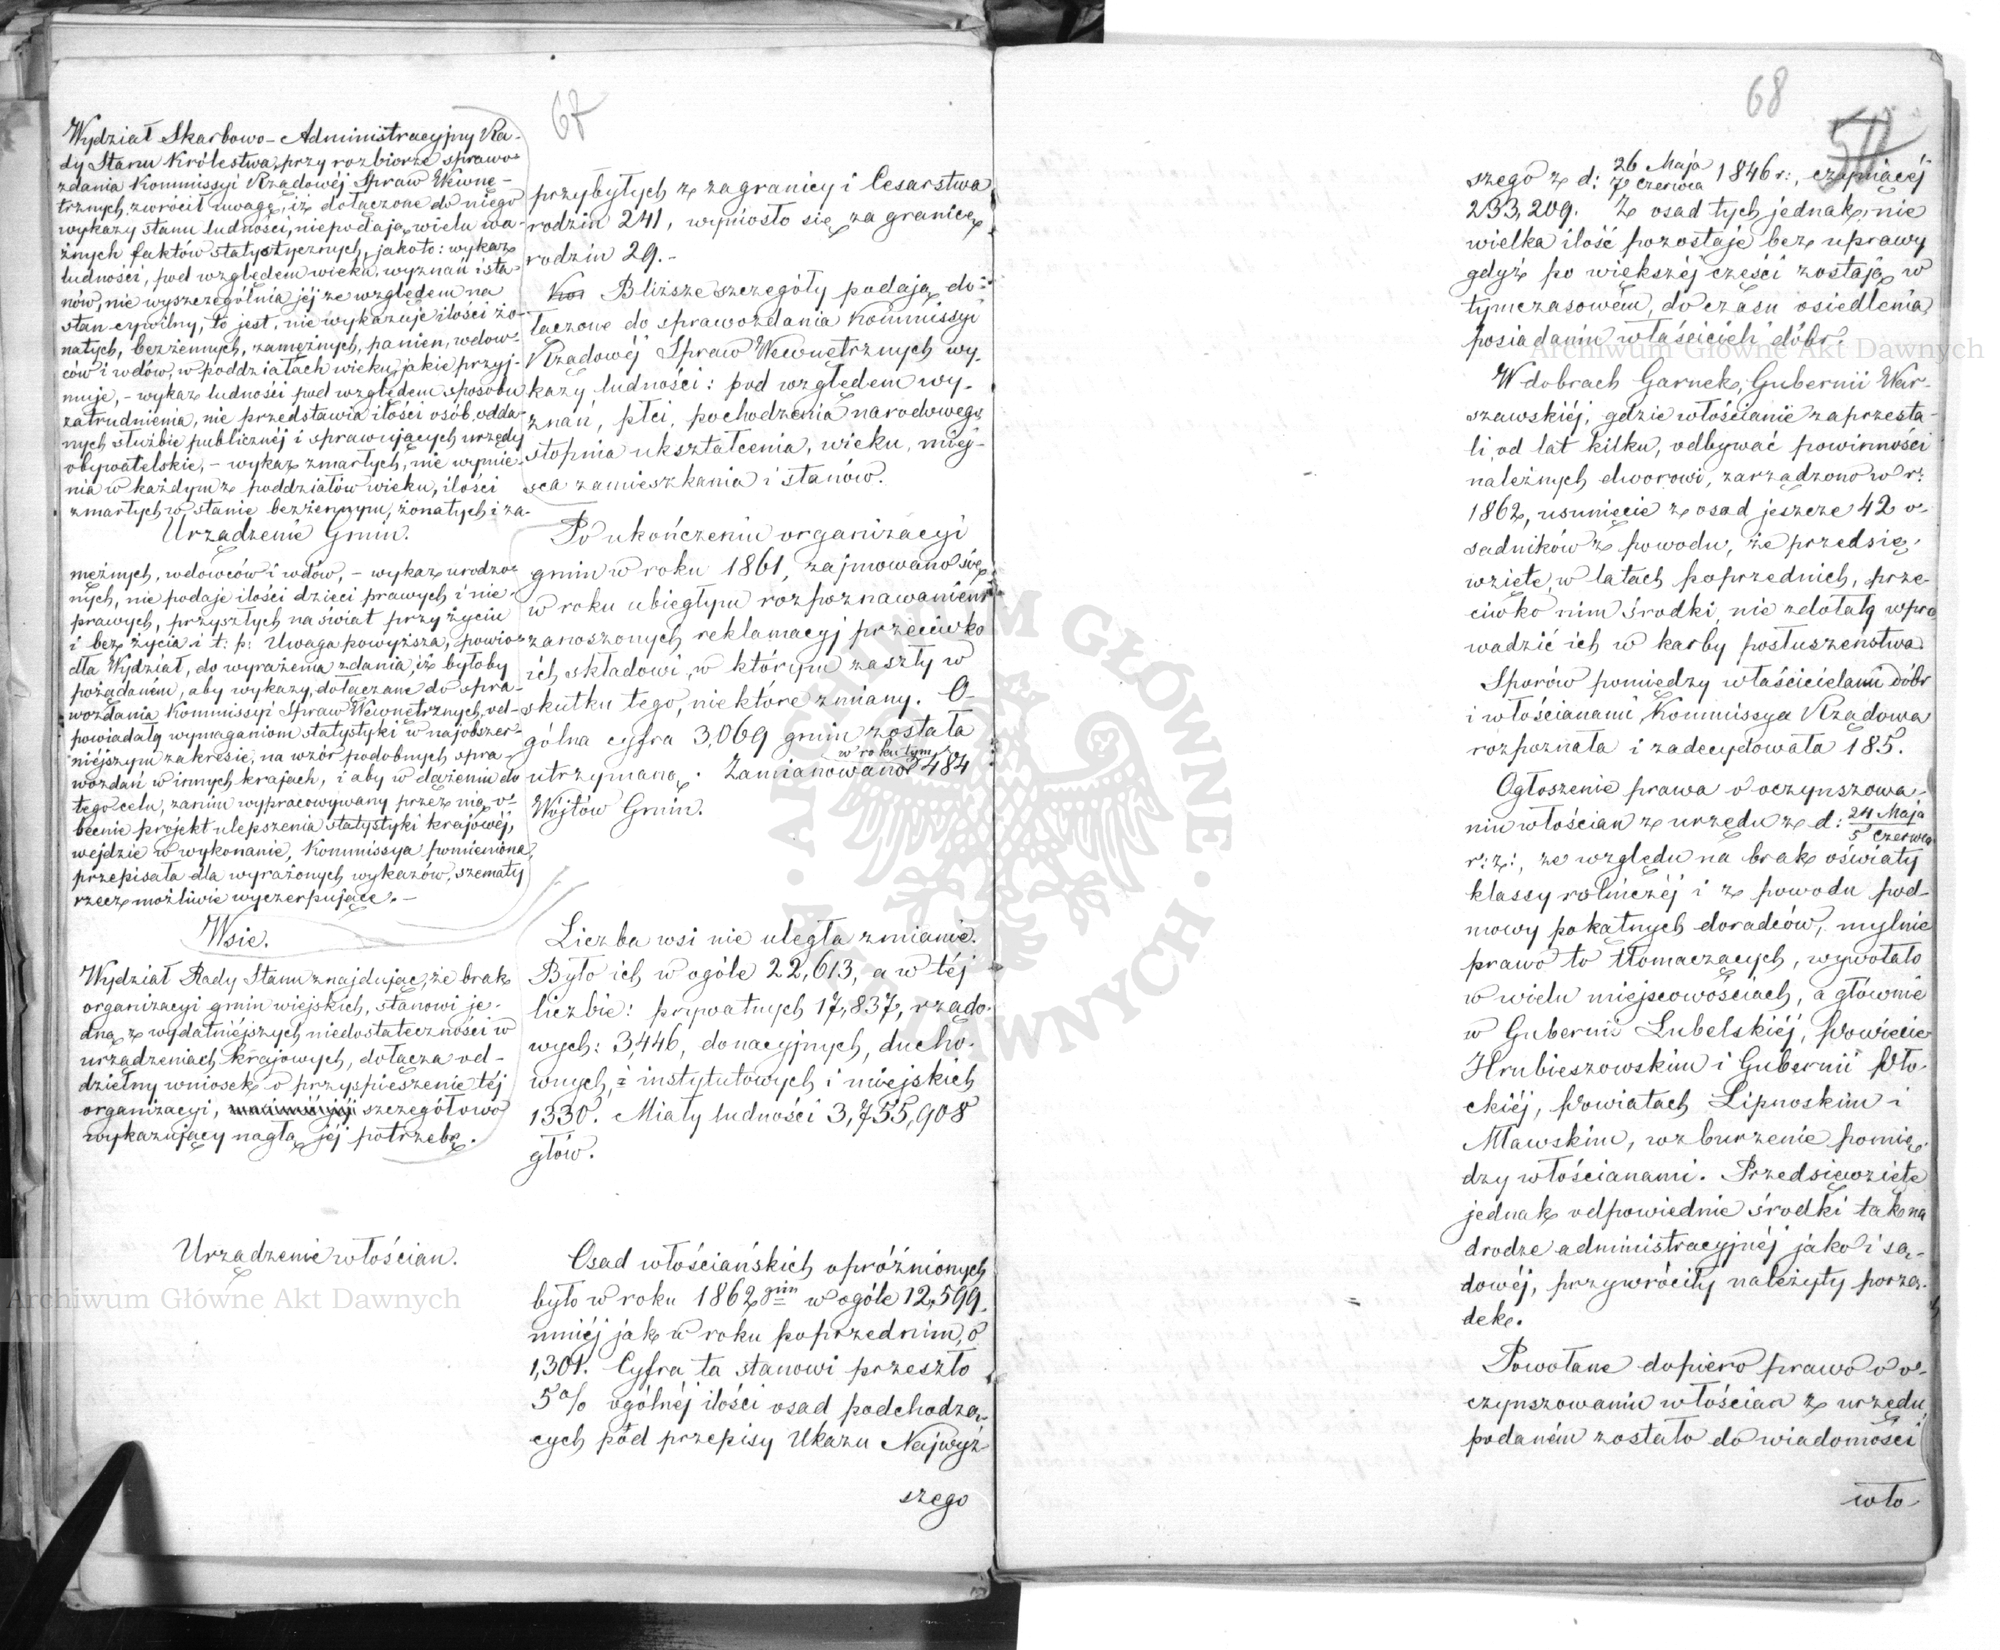 67
Wydział Skarbowo-Administracyjny Ra-
dy Stanu Królestwa, przy rozbiorze sprawo-
zdania Kommissyi Rządowéj Spraw Wewnę-
trznych, zwrócił uwagę, iż dołączone do niego
wykazy stanu ludności, niepodają wielu wa-
żnych faktów statystycznych, jakoto: wykaz
ludności, pod względem wieku, wyznań i sta-
nów, nie wyszczególnia jéj ze względem na
stan cywilny, to jest, nie wykazuje ilości żo-
natych, bezżennych, zamężnych, panien, wdow-
ców i wdów, w poddziałach wieku, jakie przyj-
muje, - wykaz ludności pod względem sposobu
zatrudnienia, nie przedstawia ilości osób, odda-
nych służbie publicznéj i sprawujących urzędy
obywatelskie, - wykaz zmarłych, nie wymie-
nia w każdym z poddziałów wieku, ilości
zmarłych w stanie bezżennym, żonatych i za-
Urządzenie Gmin.
mężnych, wdowców i wdów, - wykaz urodzo-
nych, nie podaje ilości dzieci prawych i nie-
prawych, przyszłych na świat przy życiu
i bez życia i t: p: Uwaga powyższa, powio-
dła Wydział, do wyrażenia zdania, iż byłoby
pożądaném, aby wykazy, dołączane do spra-
wozdania Kommissyi Spraw Wewnętrznych, od-
powiadały wymaganiom statystyki w najobszer-
niejszym zakresie, na wzór podobnych spra-
wozdań w innych krajach, i aby w dążeniu do
tego celu, zanim wypracowywany przez nią o-
becnie projekt ulepszenia statystyki krajowéj,
wejdzie w wykonanie, Kommissya pomieniona,
przepisała dla wyrażonych wykazów, szematy
rzecz możliwie wyczerpujące. -
Wsie.
Wydział Rady Stanu znajdując, że brak
organizacyi gmin wiejskich, stanowi je-
dną z wydatniejszych niedostateczności w
urządzeniach krajowych, dołącza od-
dzielny wniosek o przyspieszenie téj
organizacyi, szczegółowo
wykazujący nagłą jéj potrzebę.
Urządzenie włościan.
przybyłych z zagranicy i Cesarstwa
rodzin 241, wyniosło się za granicę
rodzin 29. -
Bliższe szczegóły podają do-
łączone do sprawozdania Kommissyi
Rządowéj Spraw Wewnętrznych wy-
kazy ludności: pod względem wy-
znań, płci, pochodzenia narodowego
stopnia ukształcenia, wieku, miej-
sca zamieszkania i stanów.
Po ukończeniu organizacyi
gmin w roku 1861, zajmowano się
w roku ubiegłym rozpoznawaniem
zanoszonych reklamacyj przeciwko
ich składowi, w którym zaszły w
skutku tego, niektóre zmiany. O-
gólna cyfra 3,069 gmin została
w roku tym
utrzymaną. Zamianowano 484
Wójtów Gmin.
Liczba wsi nie uległa zmianie.
Było ich w ogóle 22,613, a w téj
liczbie: prywatnych 17,837, rządo-
wych: 3,446, donacyjnych, ducho-
wnych, i instytutowych i miejskich
1330. Miały ludności 3,755,908
głów.
Osad włościańskich opróżnionych
było w roku 1862gim w ogóle 12,599.
mniéj jak w roku poprzednim, o
1,301. Cyfra ta stanowi przeszło
5% ogólnéj ilości osad podchodzą-
cych pod przepisy Ukazu Najwyż-
szego
68
szego z d: 26 Maja
7 Czerwca 1846 r:, czyniącéj
233,209. Z osad tych jednak, nie
wielka ilość pozostaje bez uprawy
gdyż po większéj części zostają w
tymczasowém, do czasu osiedlenia,
posiadaniu właścicieli dóbr.
W dobrach Garnek, Gubernii War-
szawskiéj, gdzie włościanie zaprzesta-
li, od lat kilku, odbywać powinności
należnych dworowi, zarządzono w r:
1862, usunięcie z osad jeszcze 42 o-
sadników z powodu, że przedsię-
wzięte, w latach poprzednich, prze-
ciwko nim środki, nie zdołały wpro-
wadzić ich w karby posłuszeństwa.
Sporów pomiędzy właścicielami dóbr
i włościanami Kommissya Rządowa
rozpoznała i zadecydowała 185.
Ogłoszenie prawa o oczynszowa-
niu włościan z urzędu z d: 24 Maja
5 Czerwca
r: z:, ze względu na brak oświaty
klassy rolniczéj i z powodu pod-
mowy pokątnych doradców, mylnie
prawo to tłomaczących, wywołało
w wielu miejscowościach, a głównie
w Gubernii Lubelskiéj, Powiecie
Hrubieszowskim i Gubernii Pło-
ckiéj, Powiatach Lipnoskim i
Mławskim, wzburzenie pomię-
dzy włościanami. Przedsięwzięte
jednak odpowiednie środki tak na
drodze administracyjnéj jako i są-
dowéj, przywróciły należyty porzą-
dek.
Powołane dopiero prawo o o-
czynszowaniu włościan z urzędu,
podaném zostało do wiadomości
wło
ARCHIWUM GŁÓWNE AKT DAWNYCH
Archiwum Główne Akt Dawnych
Archiwum Główne Akt Dawnych